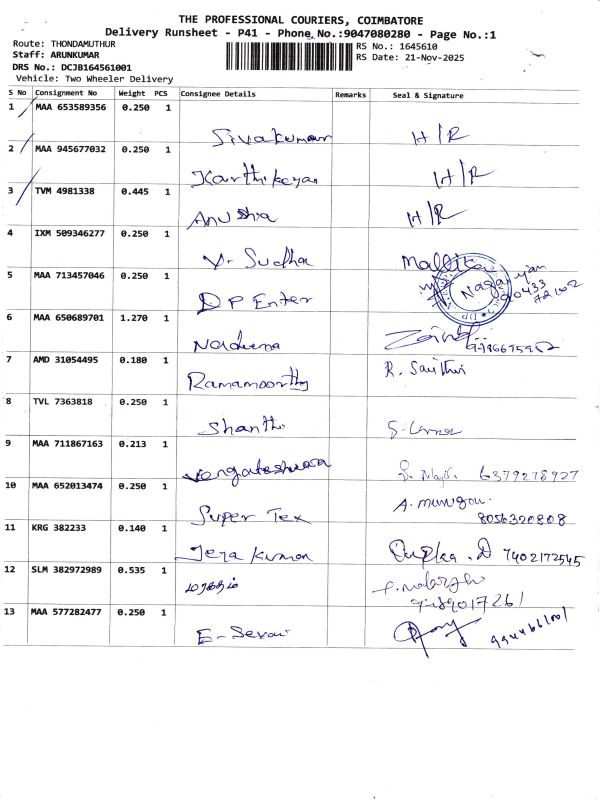 THE PROFESSIONAL COURIERS, COIMBATORE
Delivery Runsheet - P41 - Phone No.:9047080280 - Page No.:1
Route: THONDAMUTHUR
Staff: ARUNKUMAR
DRS No.: DCJB164561001
Vehicle: Two Wheeler Delivery
RS No.: 1645610
RS Date: 21-Nov-2025
S No Consignment No Weight PCS Consignee Details Remarks Seal & Signature
1 MAA 653589356 0.250 1
Sivakumar H/R
2 MAA 945677032 0.250 1
Karthikeyan H/R
3 TVM 4981338 0.445 1
Anushia H/R
4 IXM 509346277 0.250 1
V. Sudha Mallika
5 MAA 713457046 0.250 1
DP Enter Nagarajan
90433
72102
6 MAA 650689701 1.270 1
Nadeema
7 AMD 31054495 0.180 1
Ramamoorthy R.
8 TVL 7363818 0.250 1
Shanthi
9 MAA 711867163 0.213 1
Vengateshwara 6379278927
10 MAA 652013474 0.250 1
Super Tex A. Murugan.
8056320808
11 KRG 382233 0.140 1
Jeya Kumar 7402172545
12 SLM 382972989 0.535 1
மரகதம்
13 MAA 577282477 0.250 1
E-Sevai 9944661001